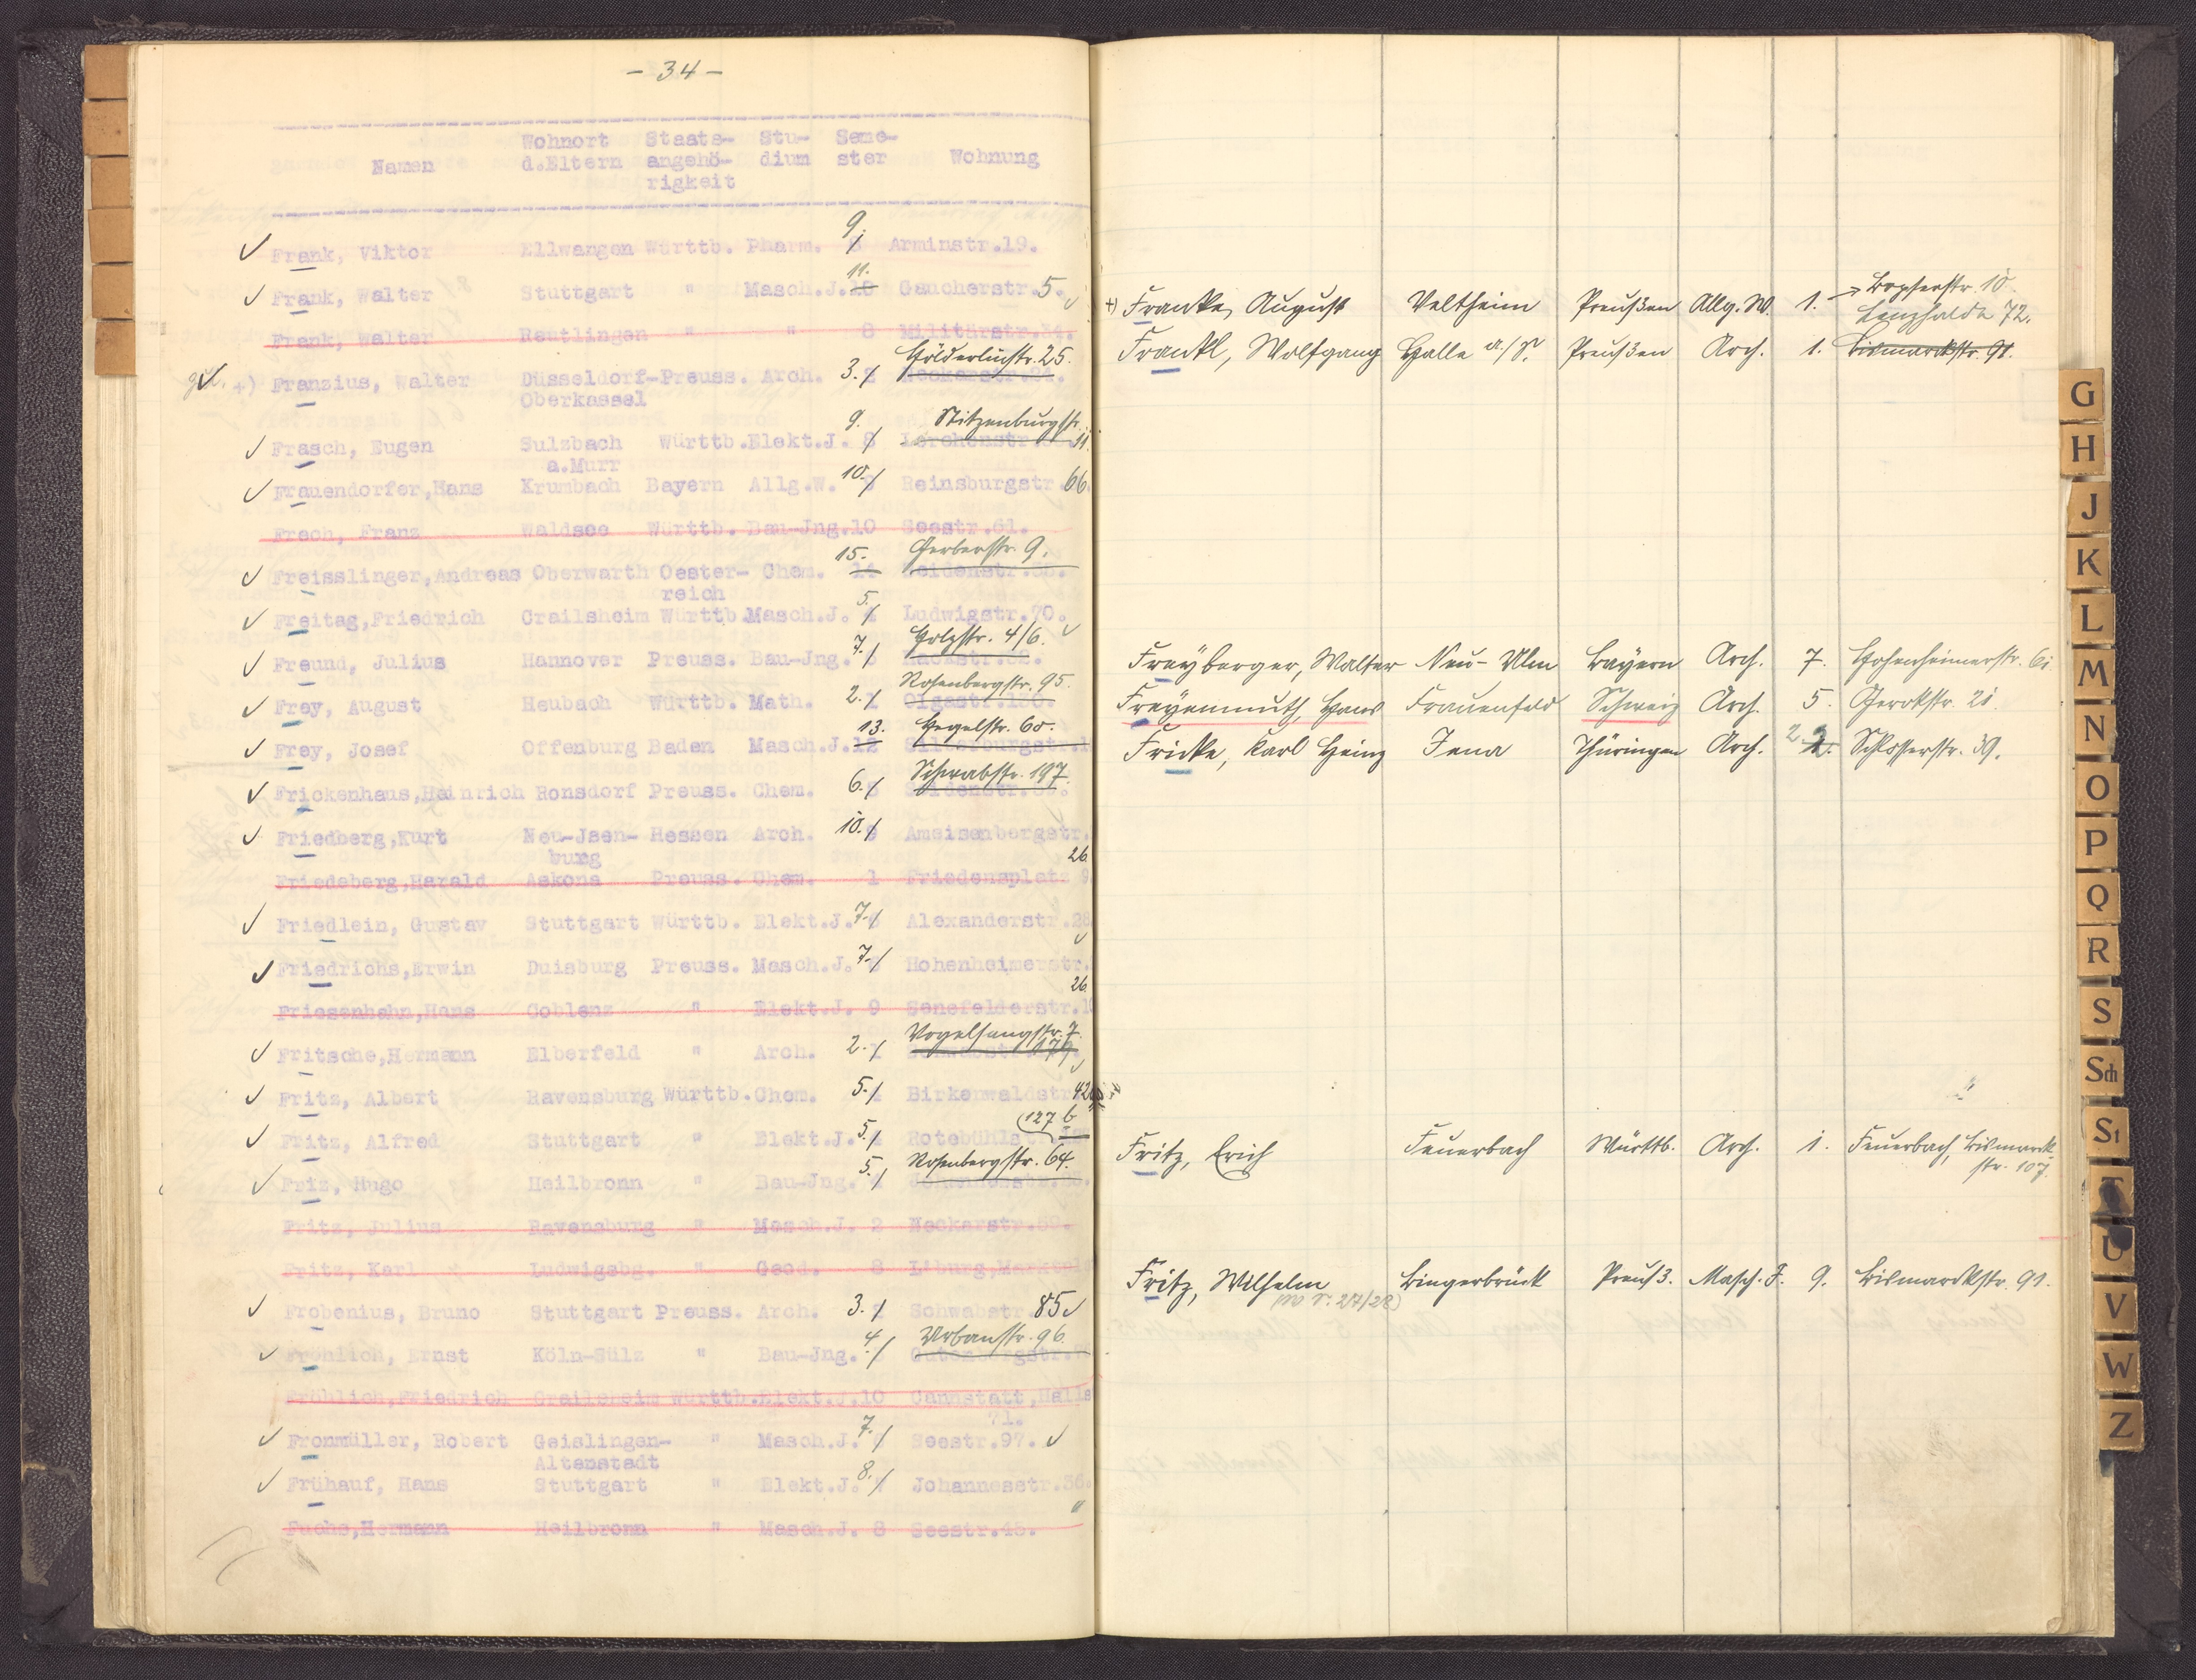 - 34 -
Namen Wohnort d.Eltern Staats-angehö-rigkeit Stu-dium Seme-ster Wohnung
9.
Frank, Viktor Ellwangen Württb. Pharm. 8 Arminstr.19.
11.
Frank, Walter Stuttgart " Masch.J. 10 Gaucherstr. 5.
Frank, Walter Reutlingen " " 8 Militärstr.34.
Hölderlinstr. 25.
+) Franzius, Walter Düsseldorf- Preuss. Arch. 3. 2 Neckarstr.24.
Oberkassel
9. Stitzenburgstr.
Frasch, Eugen Sulzbach Württb. Elekt.J. 8 Lerchenstr. 31.
a.Murr
Frauendorfer,Hans Krumbach Bayern Allg.W. 10. Reinsburgstr. 66.
Frech, Franz Waldsee Württb. Bau-Jng.10 Seestr.61.
15. Gerberstr. 9.
Freisslinger,Andreas Oberwarth Oester- Chem. 14
reich
5.
Freitag,Friedrich Crailsheim Württb. Masch.J. 4 Ludwigstr.70.
Holzstr. 4/6.
Freund, Julius Hannover Preuss. Bau-Jng. 7.
Rosenbergstr. 95.
Frey, August Heubach Württb. Math. 2. 1 Olgastr.130.
13. Hegelstr. 60.
Frey, Josef Offenburg Baden Masch.J.12 Silberburgstr.
Schwabstr. 197.
Frickenhaus,Heinrich Ronsdorf Preuss. Chem. 6. 5
Friedberg,Kurt Neu-Jsen- Hessen Arch. 10. Ameisenbergstr.
burg 26.
Friedeberg,Harald Askona Preuss. Chem. 1 Friedensplatz 9
Friedlein, Gustav Stuttgart Württb. Elekt.J. 7. Alexanderstr.
Friedrichs,Erwin Duisburg Preuss. Masch.J. 7. Hohenheimerstr.
26.
Friesenhahn,Hans Coblenz " Elekt.J. 9 Senefelderstr.
Vogelsangstr. 7.
Fritsche,Hermann Elberfeld " Arch. 2. 1
Fritz, Albert Ravensburg Württb. Chem. 5. 4 Birkenwaldstr.
127 b
Fritz, Alfred Stuttgart " Elekt.J. 5. 4 Rotebühlstr.
Rosenbergstr. 64.
Friz, Hugo Heilbronn " Bau-Jng. 5. 4 Johannesstr.
Fritz, Julius Ravensburg " Masch.J. 2 Neckarstr.
Fritz, Karl Ludwigsbg. " Geod. 8 L'burg,
Frobenius, Bruno Stuttgart Preuss. Arch. 3. Schwabstr. 85
4. Urbanstr. 96.
Fröhlich, Ernst Köln-Sülz " Bau-Jng. Gutenbergstr.
Fröhlich,Friedrich Crailsheim Württb. Elekt.J.10 Cannstatt,
71.
7.
Fronmüller, Robert Geislingen- " Masch.J. Seestr.97.
Altenstadt
8.
Frühauf, Hans Stuttgart " Elekt.J. Johannesstr.36.
Fuchs,Hermann Heilbronn " Masch.J. 8 Seestr.
+) Franke, August Veltheim Preußen Allg. W. 1. → Bopserstr. 10
Lenzhalde 72.
Frankl, Wolfgang Halle a./S. Preußen Arch. 1. Bismarckstr. 91.
Freyberger, Walter Neu-Ulm Bayern Arch. 7. Hohenheimerstr.
Freyenmuth, Hans Frauenfeld Schweiz Arch. 5. Gerokstr. 21.
Fricke, Karl Heinz Jena Thüringen Arch. 2. Schlosserstr. 39.
Fritz, Erich Feuerbach Württb. Arch. 1. Feuerbach, Bismarck-
str. 107.
Fritz, Wilhelm Bingerbrück Preuß. Masch. J. 9. Bismarckstr. 91.
G
H
J
K
L
M
N
O
P
Q
R
S
Sch
St
T
U
V
W
Z